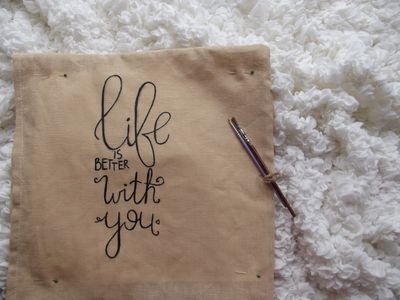 life
is
BETTER
with
you